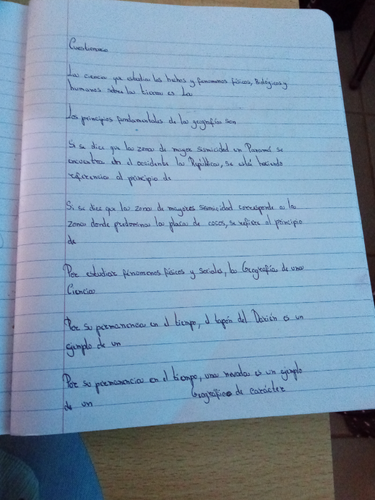 Cuestionario
La ciencia que estudia los hechos y fenomenos físicos, Biológicos y
humanos sobre la tierra es la
Los principios fundamentales de la geografía son
Si se dice que la zona de mayor sismicidad en Panamá se
encuentra en el occidente la República, se está haciendo
referencia al principio de
Si se dice que la zona de mayores sismicidad corresponde a la
zona donde predominan las placas de cocos, se refiere al principio
de
Por estudiar fenomenos físicos y sociales, la Geografía de una
Ciencia
Por su permanencia en el tiempo, el tapón del Darién es un
ejemplo de un
Por su permanencia en el tiempo, una nevada es un ejemplo
de un geográfico de carácter